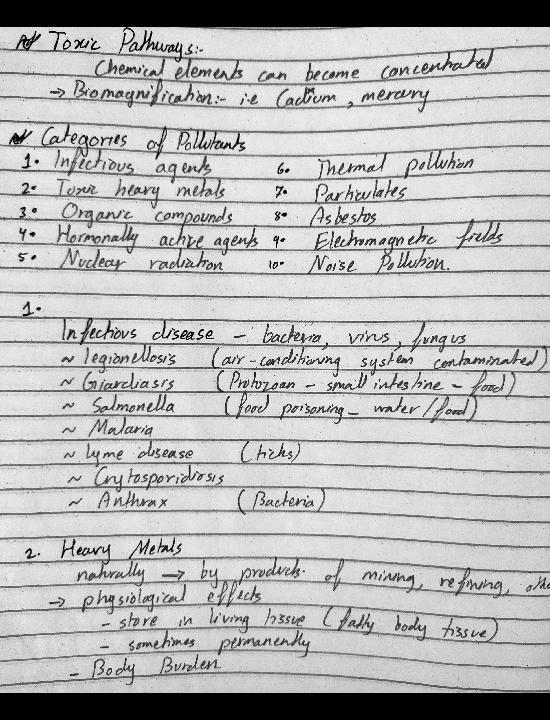 Toxic Pathways:-
Chemical elements can become concentrated
→ Biomagnification:- i.e Cadium, mercury
Categories of Pollutants
1. Infectious agents 6. Thermal pollution
2. Toxic heavy metals 7. Particulates
3. Organic compounds 8. Asbestos
4. Hormonally active agents 9. Electromagnetic fields
5. Nuclear radiation 10. Noise Pollution.
1.
Infectious disease - bacteria, virus, fungus
~ legionellosis (air-conditioning system contaminated)
~ Giardiasis (Protozoan - small intestine - food)
~ Salmonella (food poisoning - water/food)
~ Malaria
~ Lyme disease (ticks)
~ Crytosporidiosis
~ Anthrax (Bacteria)
2. Heavy Metals
naturally → by products. of mining, refining,
→ physiological effects
- store in living tissue (fatty body tissue)
- sometimes permanently
- Body Burden